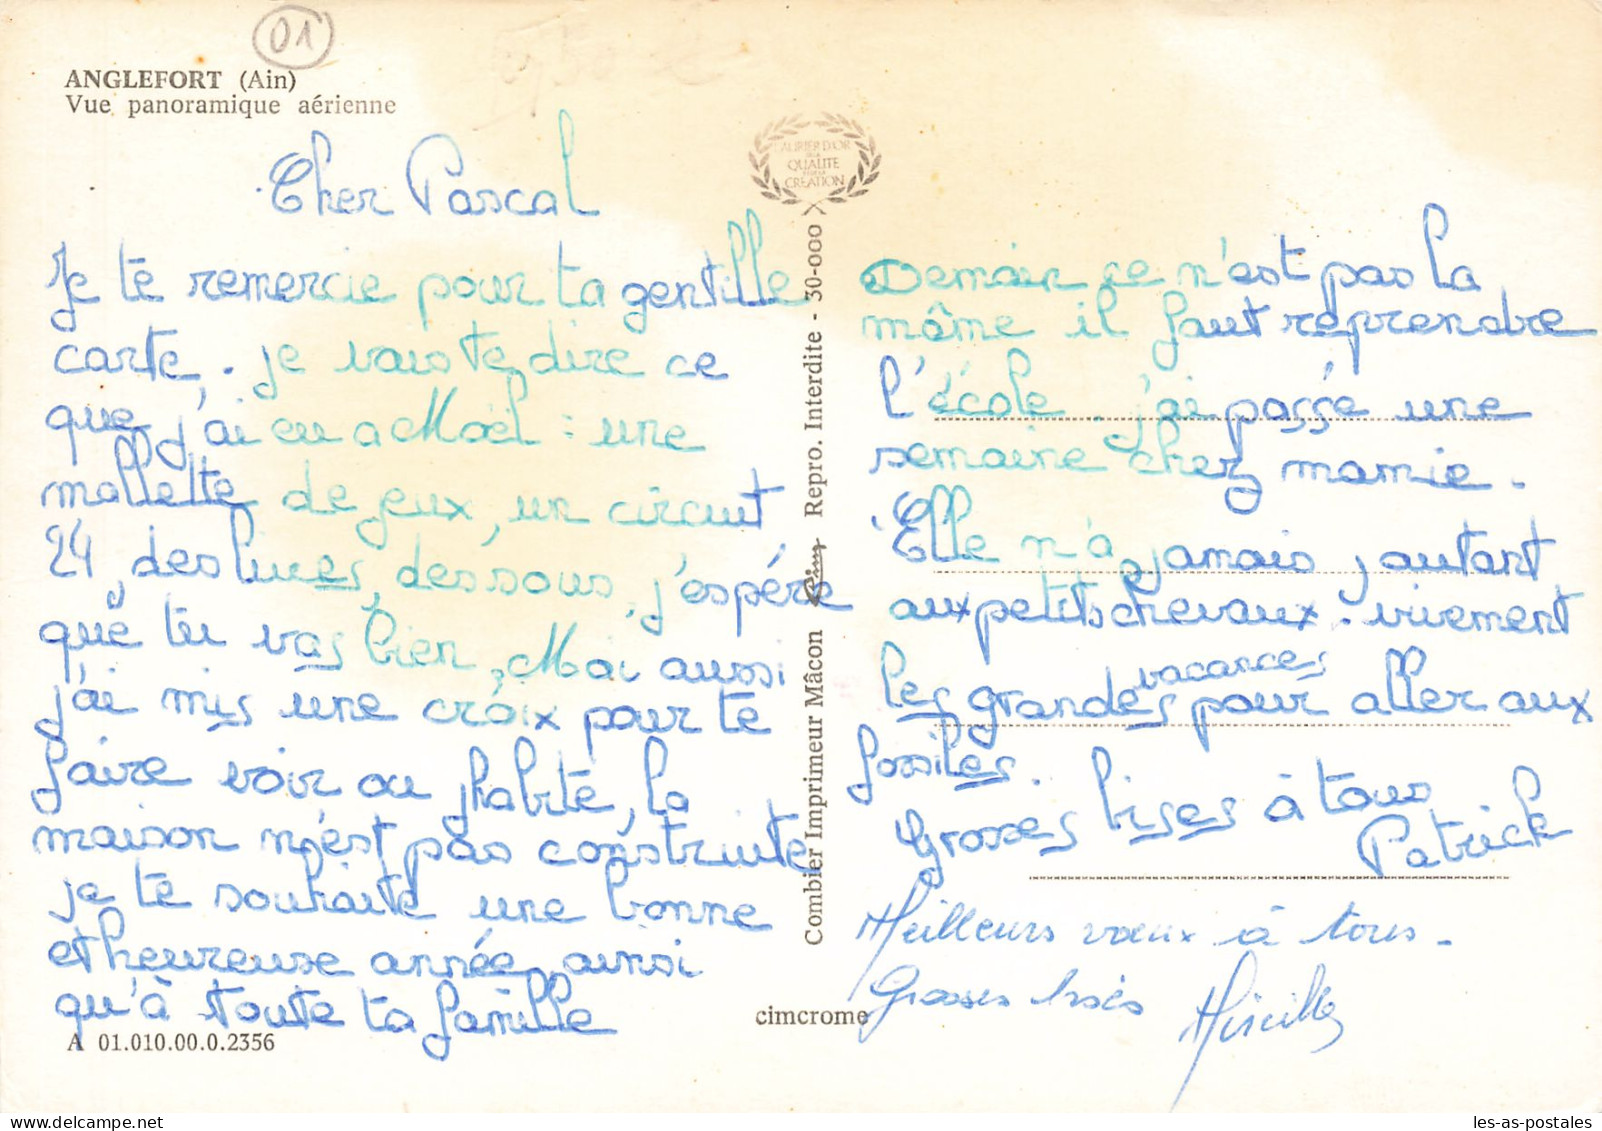 01
ANGLEFORT (Ain)
Vue panoramique aérienne
LAURIER D'OR
DE LA
QUALITE
CREATION
Cher Pascal
Je te remercie pour ta gentille
carte. je vais te dire ce
que j'ai eu a Noël : une
mallette de jeux, un circuit
24, des livres, des sous, j'espére
que tu vas bien, Moi aussi
j'ai mis une croix pour te
faire voir ou j'habite, la
maison n'est pas construite
je te souhaite une bonne
et heureuse année ainsi
qu'à toute ta famille
A 01.010.00.0.2356
Combier Imprimeur Mâcon Cim Repro. Interdite - 30-000
cimcrome
Demain ce n'est pas la
même il faut reprendre
l'école. j'ai passée une
semaine chez mamie.
Elle n'a jamais j autant
aux petits chevaux. vivement
les grandes vacances pour aller aux
fossiles.
Grosses bises à tous
Patrick
Meilleurs vœux à tous -
Grosses bises Mireille
les-as-postales